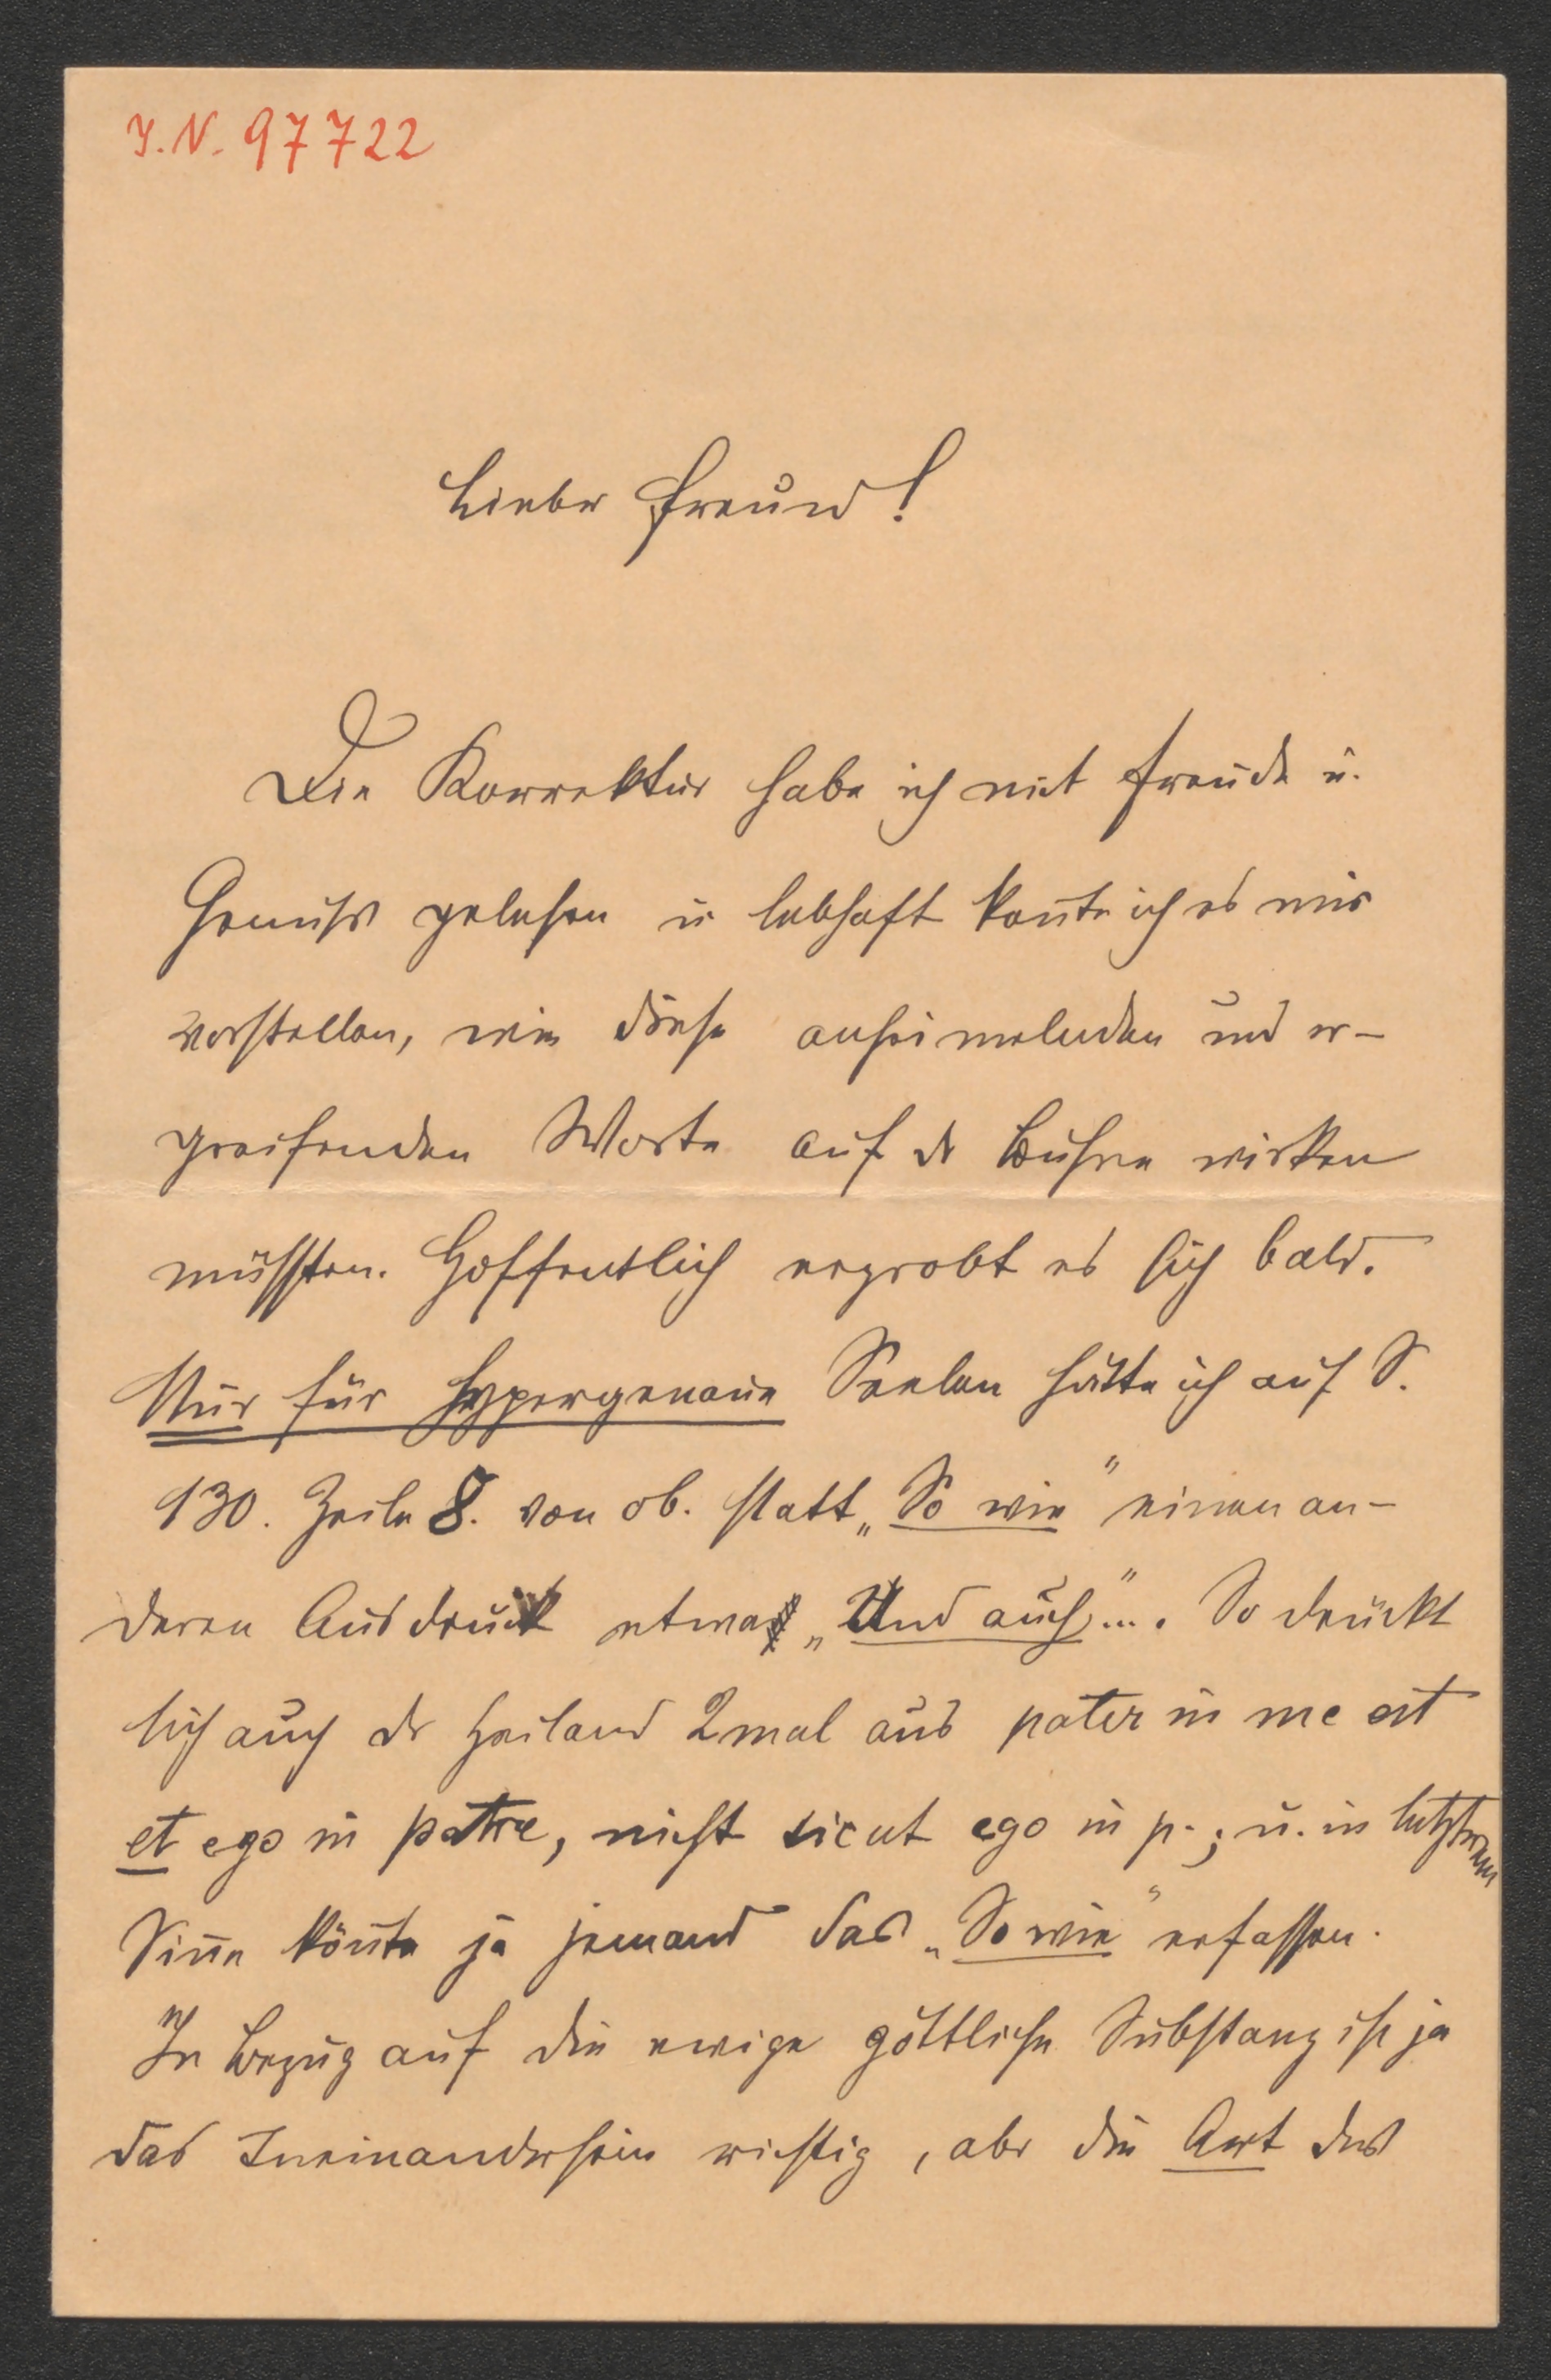 I.N. 97722
Lieber Freund!
Die Korrektur habe ich mit Freude u.
Genuss gelesen u lebhaft konnte ich es mir
vorstellen, wie diese anheimelnden und er-
greifenden Worte auf der Bühne wirken
müssten. Hoffentlich erprobt es sich bald.
Nur für hypergenaue Seelen hätte ich auf S.
130. Zeile 8. von ob. statt „So wie" einen an-
deren Ausdruck etwa „Und auch"... . So drückt
sich auch der Heiland 2mal aus pater in me est
et ego in patre, nicht sicut ego in p.; u. in letzterem
Sinne könnte ja jemand das „So wie" erfassen.
In Bezug auf die ewige göttliche Substanz ist ja
das Ineinandersein richtig, aber die Art des